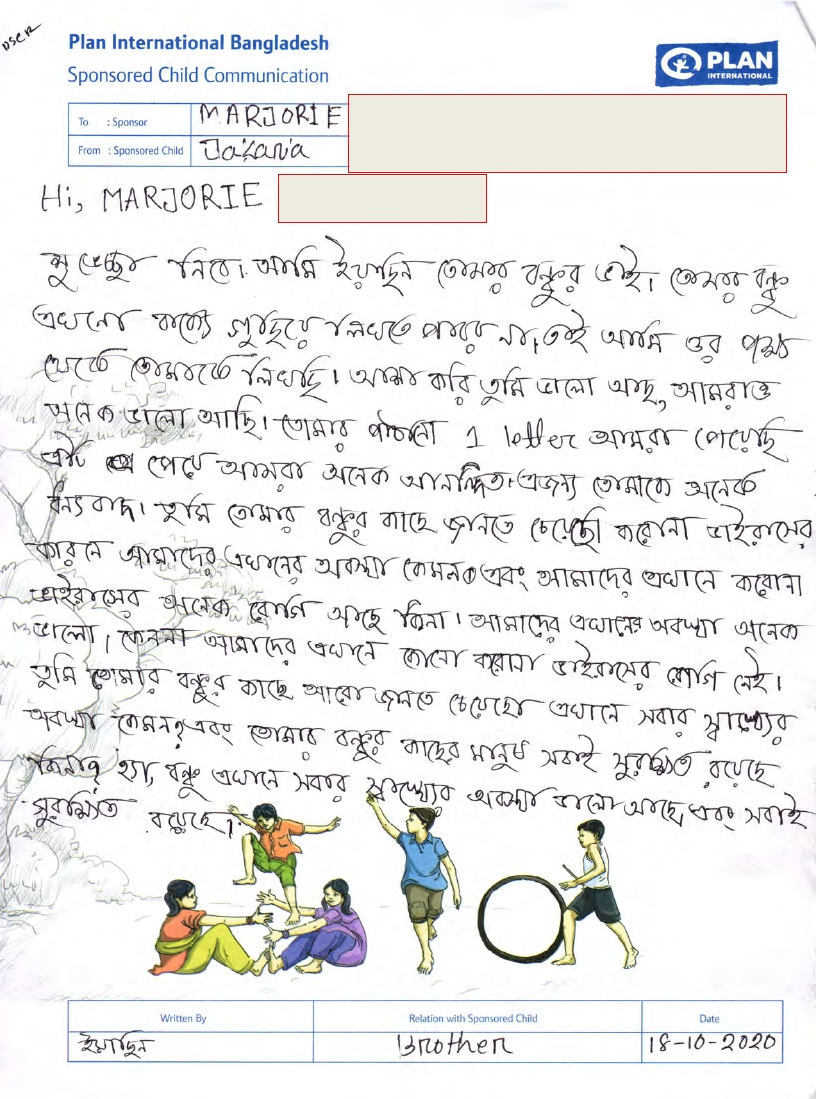 DSCR
Plan International Bangladesh
Sponsored Child Communication
PLAN
INTERNATIONAL
To : Sponsor MARJORIE
From : Sponsored Child
Hi, MARJORIE
শুভেচ্ছা নিবে। আমি ইয়াছিন তোমার বন্ধুর ভাই। তোমার বন্ধু
এখনো বাক্যে গুছিয়ে লিখতে পারে না, তাই আমি ওর পক্ষ
থেকে তোমাকে লিখছি। আশা করি তুমি ভালো আছ, আমরাও
অনেক ভালো আছি। তোমার পাঠানো 1 letter আমরা পেয়েছি
এটি পেয়ে আমরা অনেক আনন্দিত। এজন্য তোমাকে অনেক
ধন্যবাদ। তুমি তোমার বন্ধুর কাছে জানতে চেয়েছো করোনা ভাইরাসের
কারনে আমাদের এখানের অবস্থা কেমন এবং আমাদের এখানে করোনা
ভাইরাসের অনেক রোগি আছে কিনা। আমাদের এখানের অবস্থা অনেক
ভালো। কেননা আমাদের এখানে কোনো করোনা ভাইরাসের রোগি নেই।
তুমি তোমার বন্ধুর কাছে আরো জানতে চেয়েছো এখানে সবার স্বাস্থ্যের
অবস্থা কেমন? এবং তোমার বন্ধুর কাছের মানুষ সবাই সুরক্ষিত রয়েছে
কিনা? হ্যা, বন্ধু এখানে সবার স্বাস্থ্যের অবস্থা ভালো আছে, এবং সবাই
সুরক্ষিত রয়েছে।
Written By Relation with Sponsored Child Date
ইয়াছিন Brother 18-10-2020